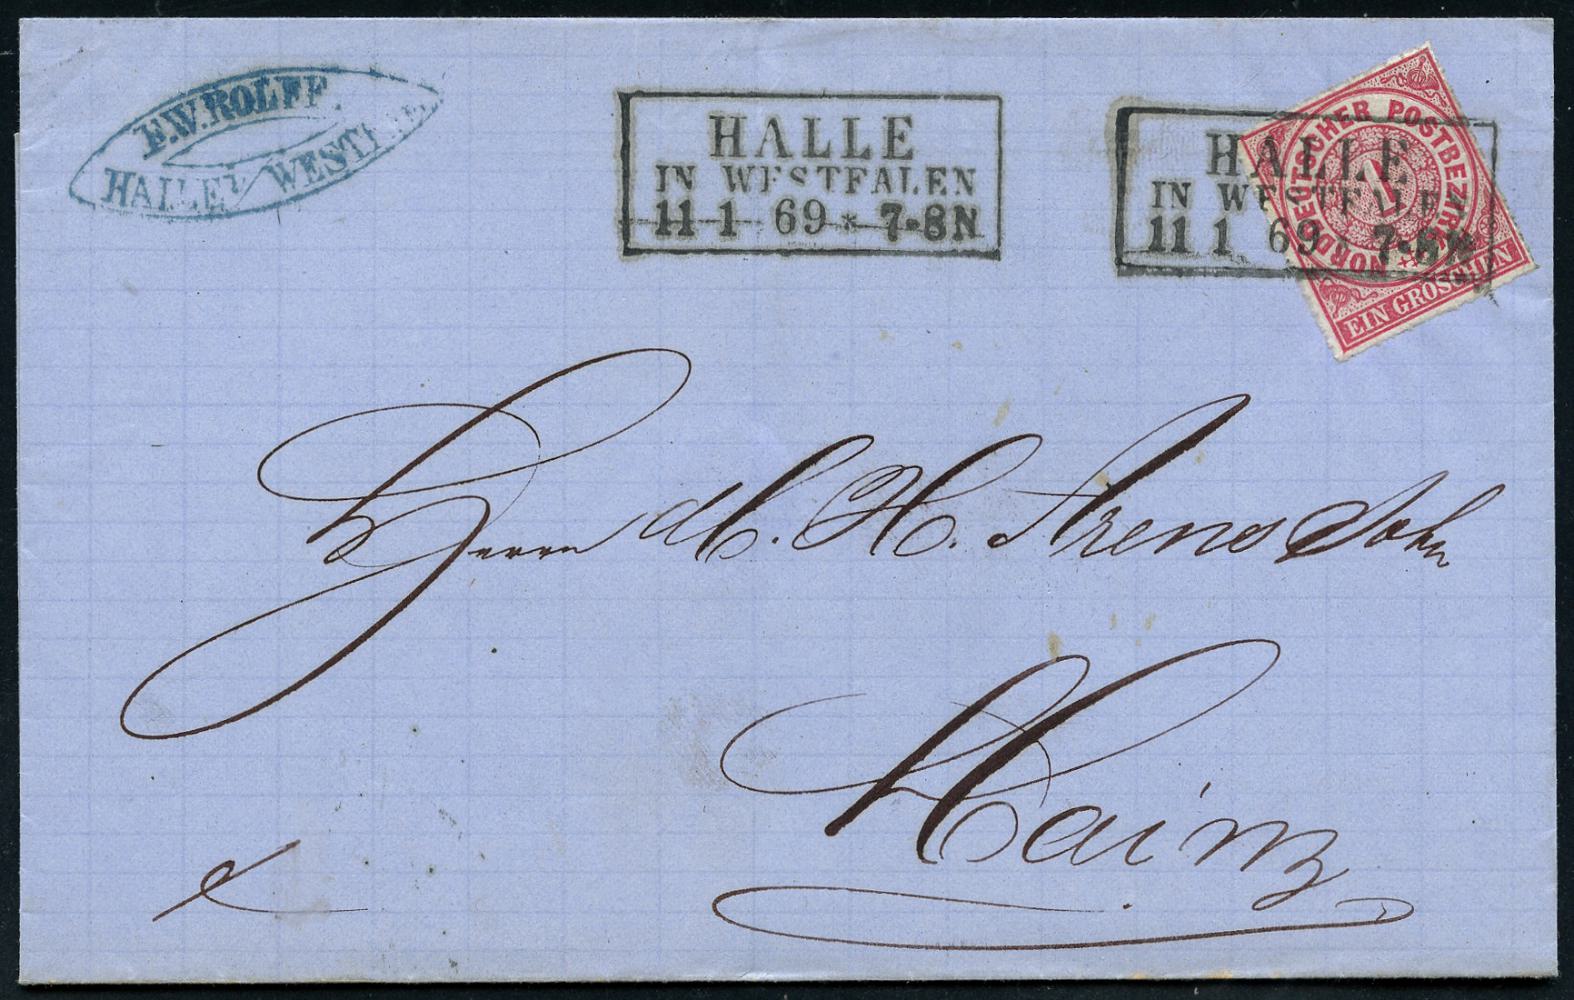 F.W. ROLFF.
HALLE I/ WESTF
HALLE
IN WESTFALEN
11 1 69 * 7-8N
HALLE
IN WESTFALEN
11 1 69 7-8N
NORDDEUTSCHER POSTBEZIRK
1
EIN GROSCHEN
Herrn H. Arens Sohn
Mainz